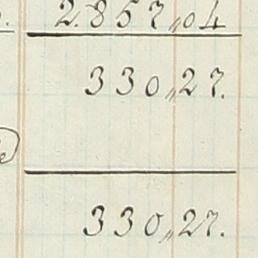 2.857,,04
330,,27.
330,,27.